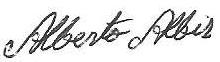 Alberto Albis